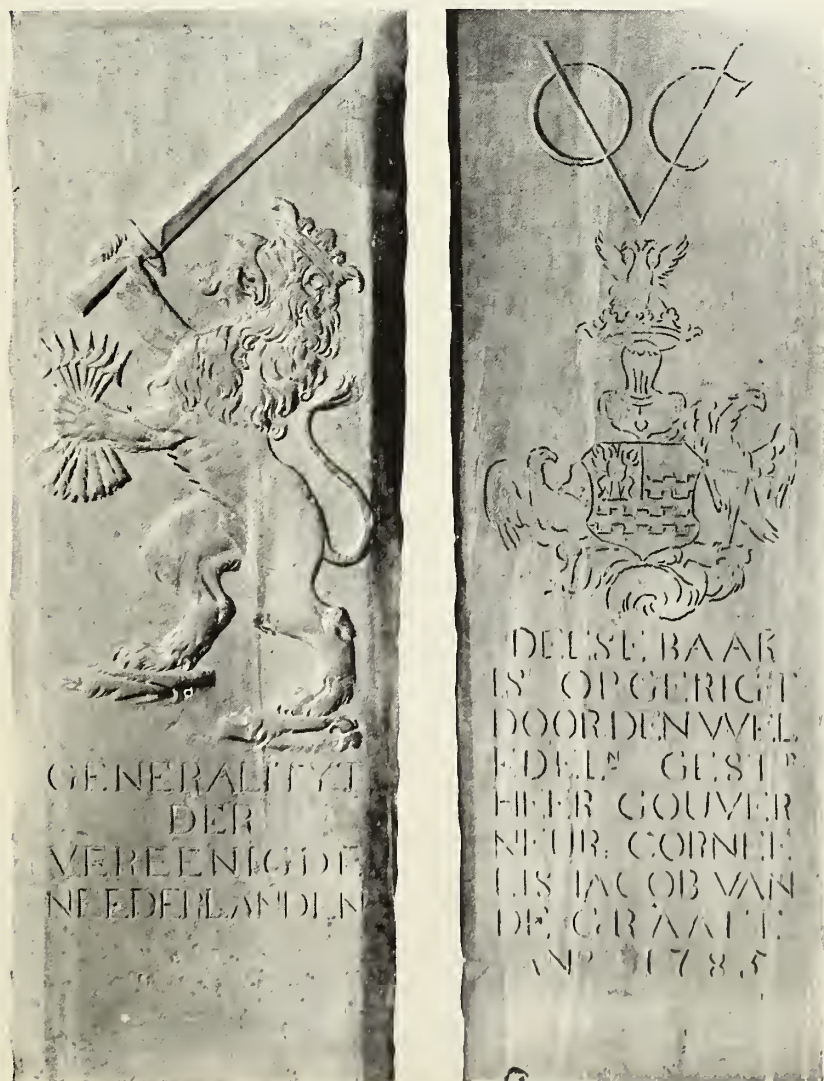 GENERALITYT
DER
VEREENIGDE
NEEDERLANDEN
VOC
DEESE BAAK
IS OPGERIGT
DOOR DEN WEL
EDELN GESTR
HEER GOUVER
NEUR. CORNEE
LIS JACOB VAN
DE GRAAFF.
ANO 1785